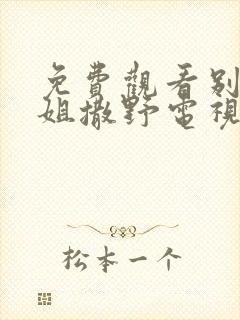 免費觀看别
姐撒野電視
松本一个